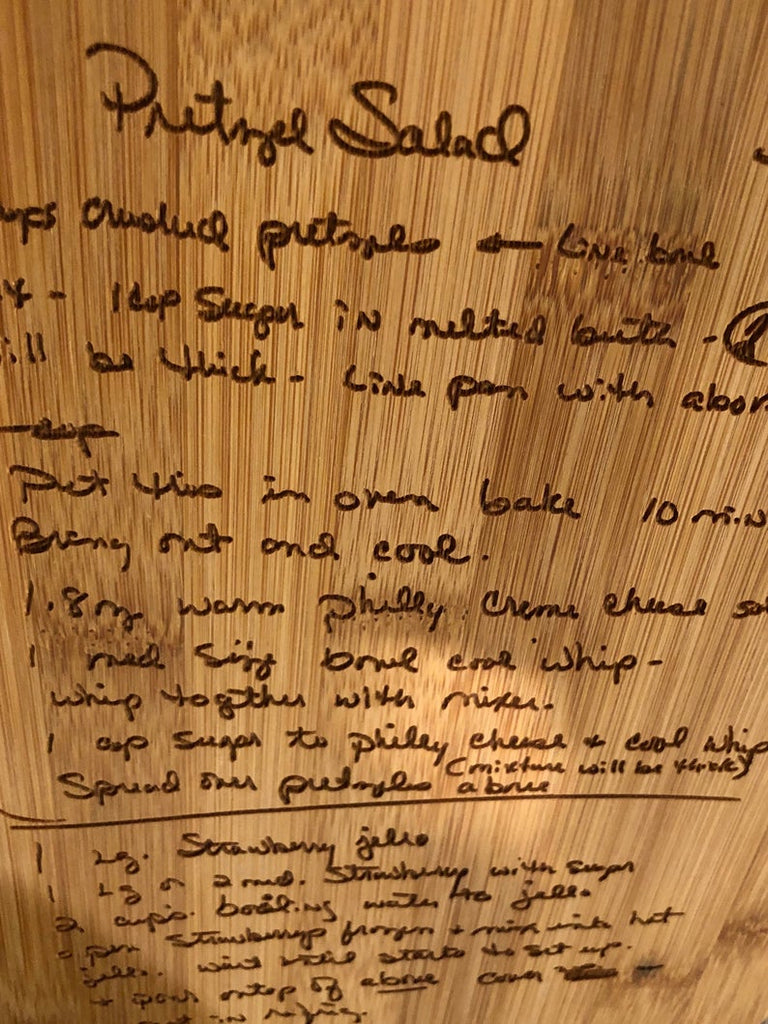 Pretzel Salad
ups crushed pretzels ← Line bowl
- 1 cup Sugar in melted butter -
ill be thick - Line pan with above
cup
Put this in oven bake 10 min
Bring out and cool.
1. 8 oz warm philly creme cheese so
1 med size bowl cool whip -
whip together with mixer.
1 cup sugar to philey cheese + cool whip
(mixture will be thick)
Spread over pretzels above
1 Lg. Strawberry jello
1 Lg or 2 med. Strawberrys with sugar
2 cups. boiling water to jello
Strawberrys frozen + mix into hot
jello. wait until starts to set up.
+ pour ontop of above cover
put in refrig.